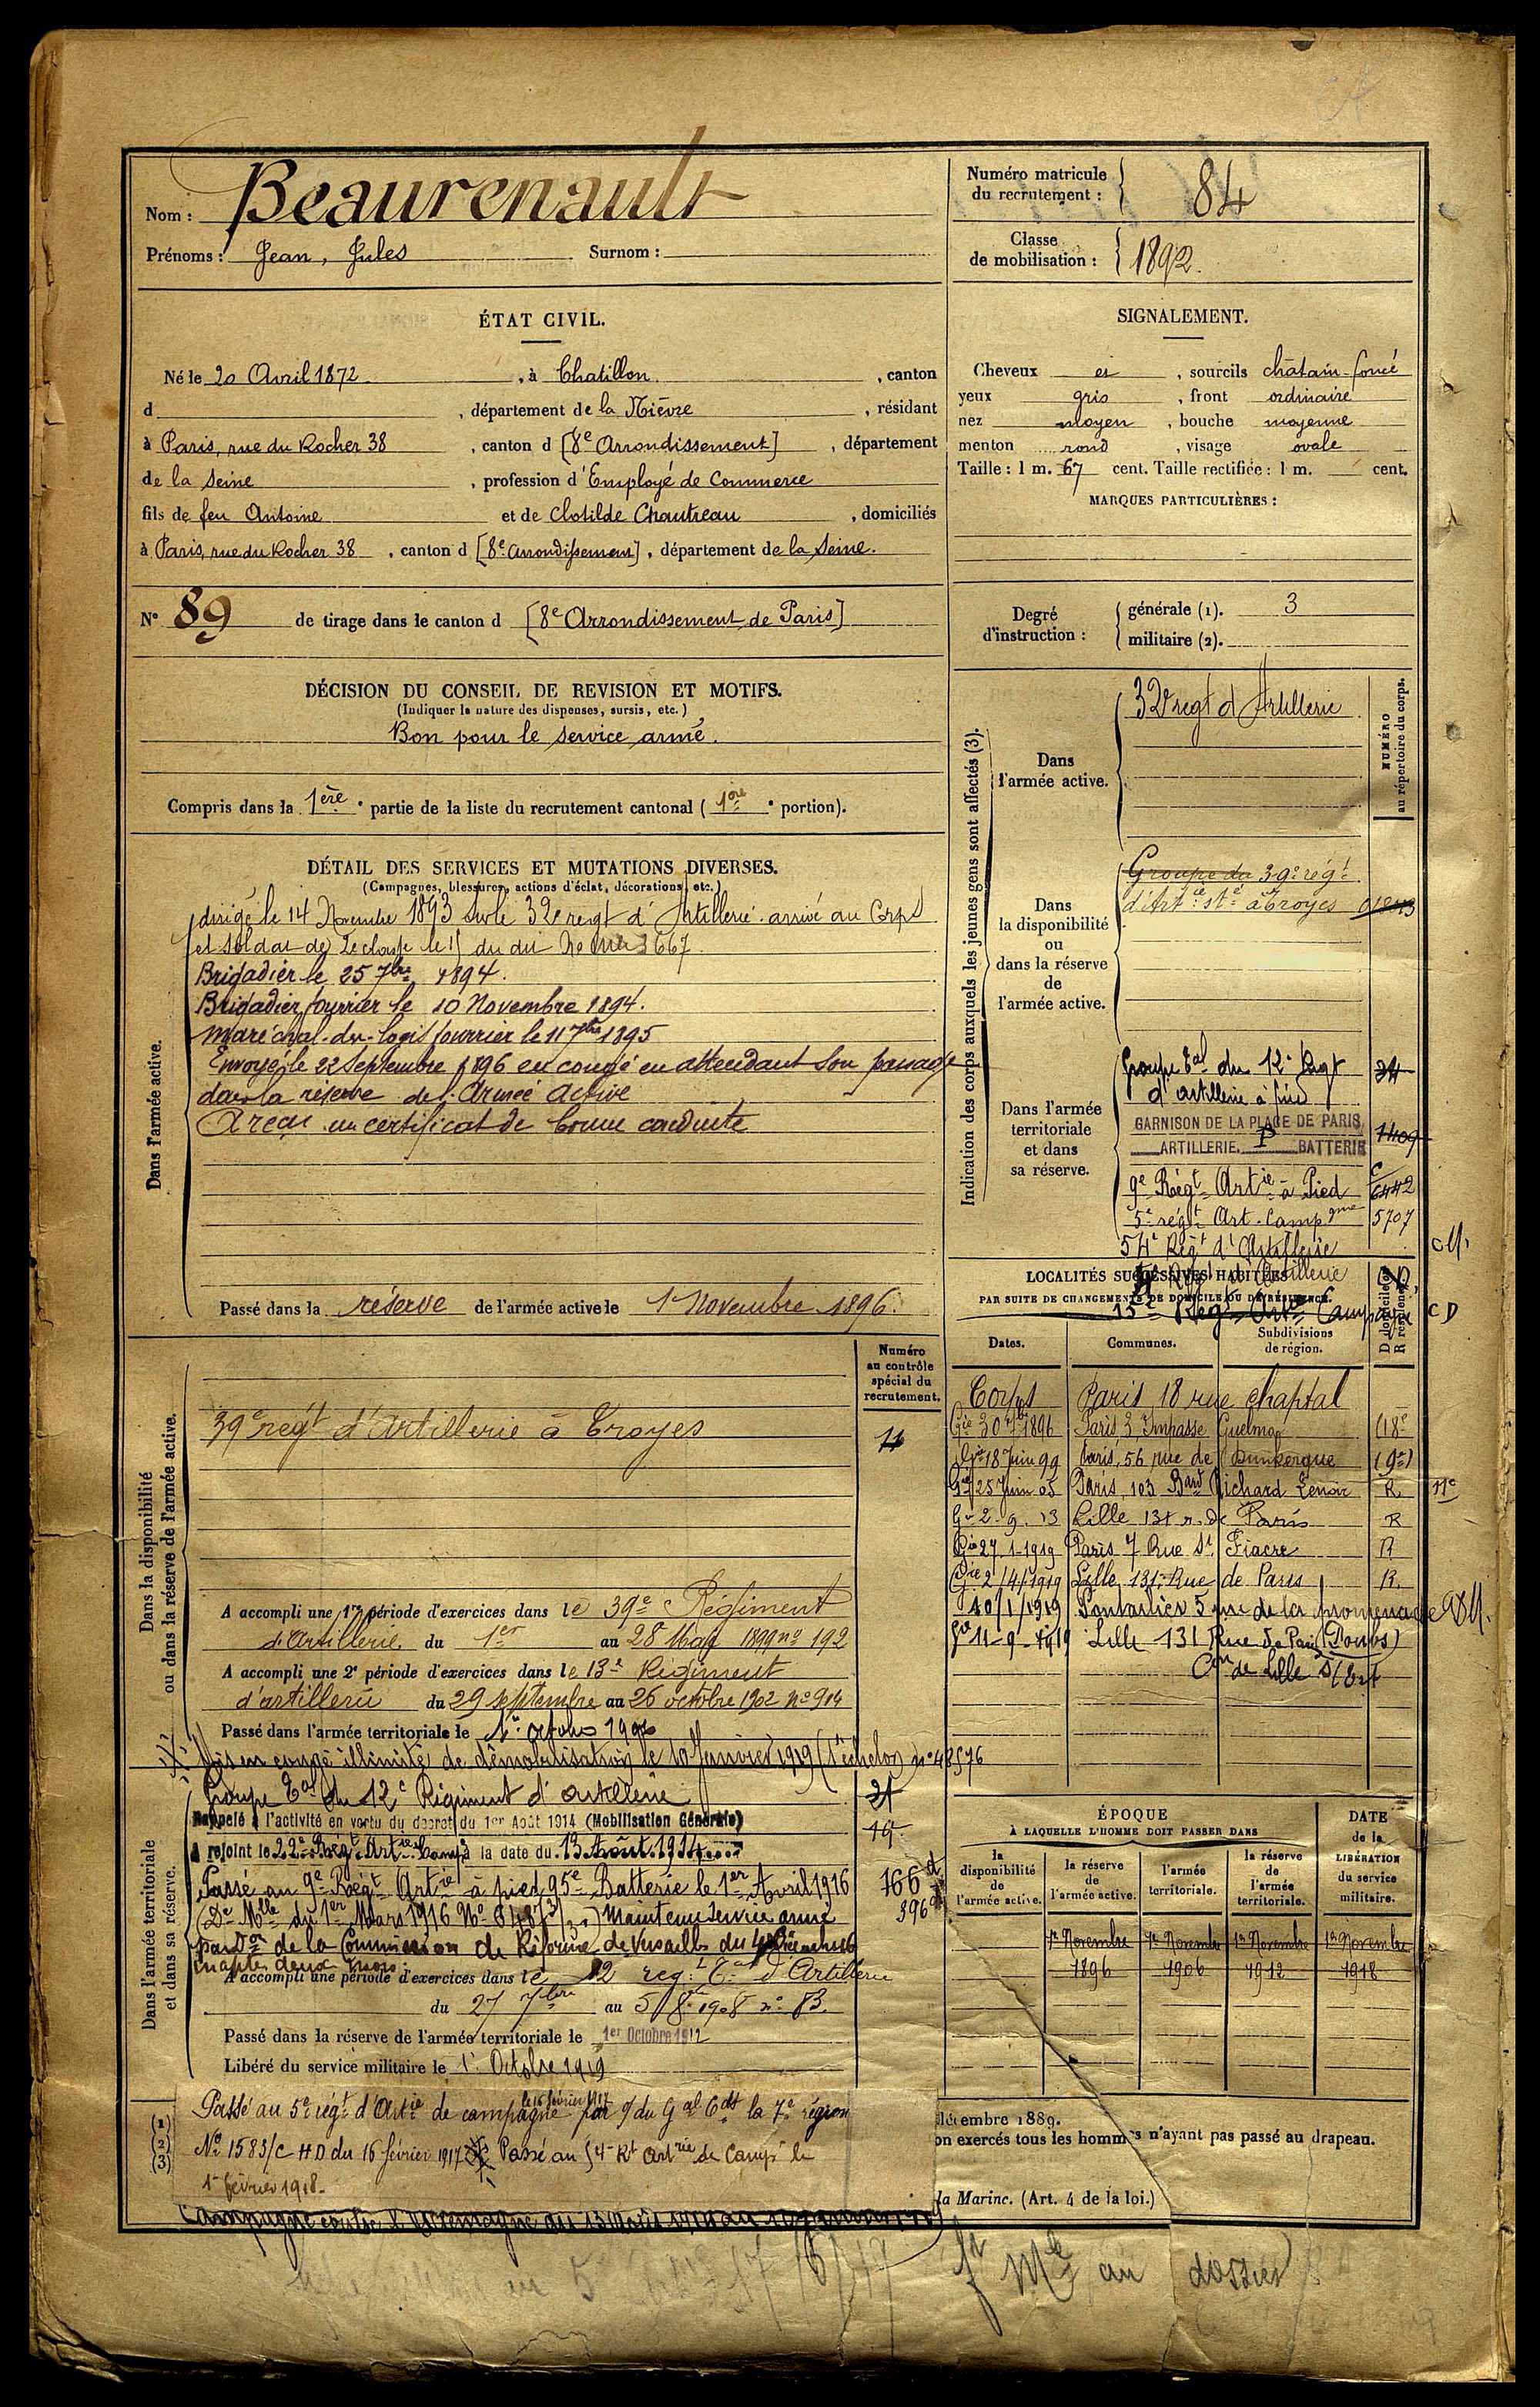 Nom : Beaurenault
Prénoms : Jean, Jules Surnom :
Numéro matricule du recrutement : 84
Classe de mobilisation : 1892.
ÉTAT CIVIL.
Né le 20 Avril 1872 , à Chatillon , canton
d , département de la Nièvre , résidant
à Paris, rue du Rocher 38 , canton d [8e Arrondissement] , département
de la Seine , profession d'Employé de Commerce
fils de feu Antoine et de Clotilde Chautreau , domiciliés
à Paris, rue du Rocher 38 , canton d [8e arrondissement] , département de la Seine.
SIGNALEMENT.
Cheveux et , sourcils châtain-foncé
yeux gris , front ordinaire
nez moyen , bouche moyenne
menton rond , visage ovale
Taille : 1 m. 67 cent. Taille rectifiée : 1 m. cent.
MARQUES PARTICULIÈRES :
N° 89 de tirage dans le canton d [8e Arrondissement de Paris]
Degré d'instruction : générale (1). 3
militaire (2).
DÉCISION DU CONSEIL DE REVISION ET MOTIFS.
(Indiquer la nature des dispenses, sursis, etc.)
Bon pour le service armé.
Compris dans la 1ère partie de la liste du recrutement cantonal ( 1ère portion).
DÉTAIL DES SERVICES ET MUTATIONS DIVERSES.
(Campagnes, blessures, actions d'éclat, décorations, etc.)
Dans l'armée active.
dirigé le 14 Novembre 1893 sur le 32e regt d'Artillerie arrivé au Corps
et soldat de 2e classe le 15 du dit
Brigadier le 25 7bre 1894.
Brigadier fourrier le 10 Novembre 1894.
Maréchal-des-logis fourrier le 11 7bre 1895
Envoyé le 22 Septembre 1896 en congé en attendant son passage
dans la réserve de l'Armée active
A reçu un certificat de bonne conduite
Passé dans la réserve de l'armée active le 1 Novembre 1896.
Indication des corps auxquels les jeunes gens sont affectés (3).
NUMÉRO au répertoire du corps.
Dans l'armée active.
32e regt d'Artillerie
Dans la disponibilité ou dans la réserve de l'armée active.
Groupe du 39e régt
d'Artie sté à Troyes
Dans l'armée territoriale et dans sa réserve.
Groupe Tal du 12e Regt 34
d'artillerie à pied
GARNISON DE LA PLACE DE PARIS
ARTILLERIE. P BATTERIE 1409
9e Régt Artie à Pied 6442
5e régt Art. Campgne 5707
54e Régt d'Artillerie
15e Régt Artie Campagne
LOCALITÉS SUCCESSIVES HABITÉES
PAR SUITE DE CHANGEMENTS DE DOMICILE OU DE RÉSIDENCE.
Dates. Communes. Subdivisions de région. D domicile R résidence.
Corps Paris 18 rue Chaptal
Gie 30 7bre 1896 Paris, 3 Impasse Guelma (18e
Gie 18 Juin 99 Paris, 56 rue de Dunkerque (9e)
Gie 25 Juin 05 Paris, 103 Bard Richard Lenoir R. 11e
Gie 2. 9. 13 Lille 131 r. de Paris R
Gie 27.1.1919 Paris 7 Rue St Fiacre R
Gie 2/4/1919 Lille, 131, Rue de Paris R.
10/1/1919 Pontarlier 5 rue de la promenade
Gie 11-9-1919 Lille 131 Rue de Paris (Doubs)
Con de Lille S/Est
Dans la disponibilité ou dans la réserve de l'armée active.
Numéro au contrôle spécial du recrutement.
39e regt d'Artillerie à Troyes
A accompli une 1re période d'exercices dans le 39e Régiment
d'Artillerie du 1er au 28 Mai 1899 no 192
A accompli une 2e période d'exercices dans le 13e Régiment
d'artillerie du 29 septembre au 26 octobre 1902 no 914
Passé dans l'armée territoriale le 1er octobre 1906
Mis en congé illimité de démobilisation le 10 Janvier 1919 (1er échelon) no 48576
Dans l'armée territoriale et dans sa réserve.
Groupe Tal du 12e Régiment d'artillerie
Rappelé à l'activité en vertu du decret du 1er Août 1914 (Mobilisation Générale)
A rejoint le 22e Régt Artie Camp à la date du 13 Août 1914
Passé au 9e Régt Artie à pied 95e Batterie le 1er Avril 1916 166
(De Mlle du 1er Mars 1916 No 6487 3/30) Maintenu Service armé 396
par Don de la Commission de Réforme de Versailles du
inapte deux mois
A accompli une période d'exercices dans le 12 regt Tal d'Artillerie
du 27 7bre au 5 8bre 1908 no 83.
Passé dans la réserve de l'armée territoriale le 1er Octobre 1912
Libéré du service militaire le 1er Octobre 1919
ÉPOQUE
À LAQUELLE L'HOMME DOIT PASSER DANS
DATE de la LIBÉRATION du service militaire.
la disponibilité de l'armée active. la réserve de l'armée active. l'armée territoriale. la réserve de l'armée territoriale.
1er Novembre 1er Novembre 1er Novembre 1er Novembre
1896 1906 1912 1918
(1)
(2)
(3)
Passé au 5e régt d'Artie de campagne le 16 février 1917 par o/ du Gal Cdt la 7e région
No 1583/C HD du 16 février 1917 Passé au 54e Rt Artrie de Campe le
1er février 1918.
Campagne contre l'Allemagne du 13 Août 1914 au 10 Janvier 1919
décembre 1889.
on exercés tous les hommes n'ayant pas passé au drapeau.
la Marine. (Art. 4 de la loi.)
au dossier